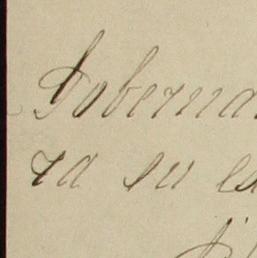 Goberna
ra su es